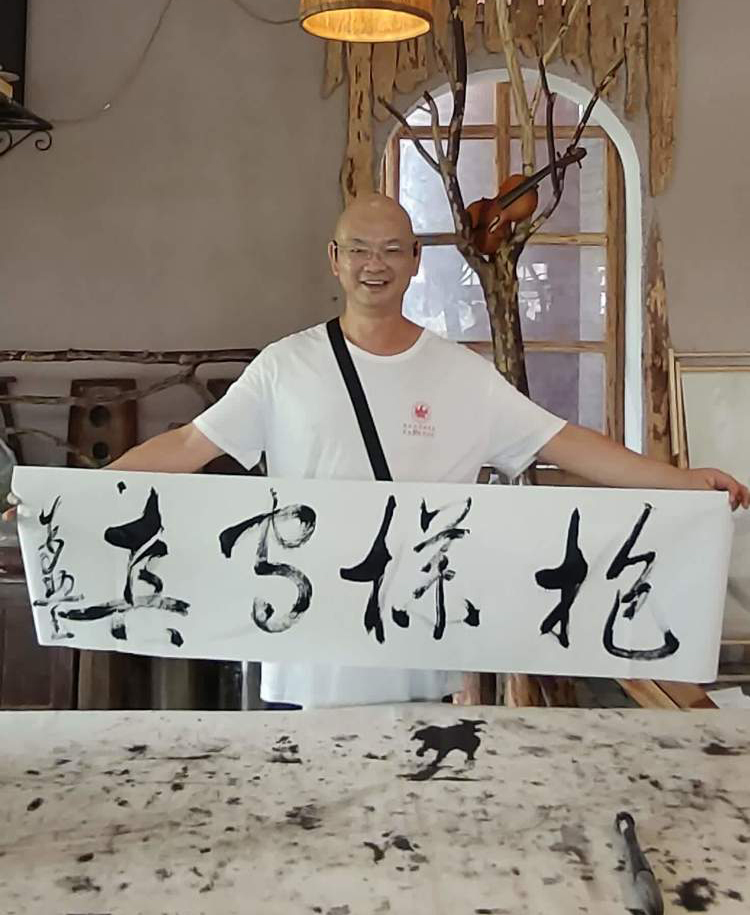 抱樸守真